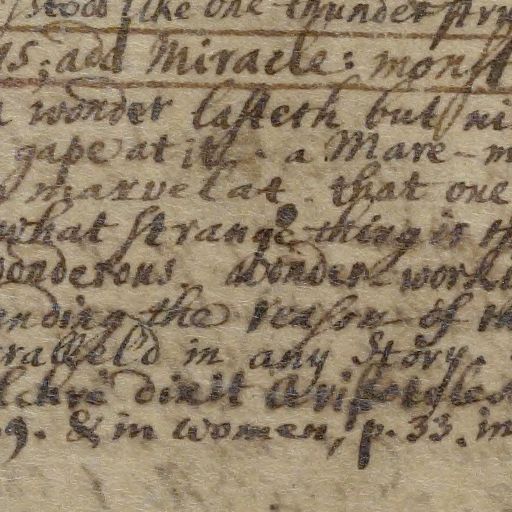 stood like one thunder stru
us; add Miracle: monst
a wonder lasteth but ni
gape at it. a Mare-m
marvel at. that one
what strange thing is th
wonderous. wonder-worki
nding the reason of th
rallel'd in any Story.
lchrè dixit Aristoteles
9. & in women, p. 33. in